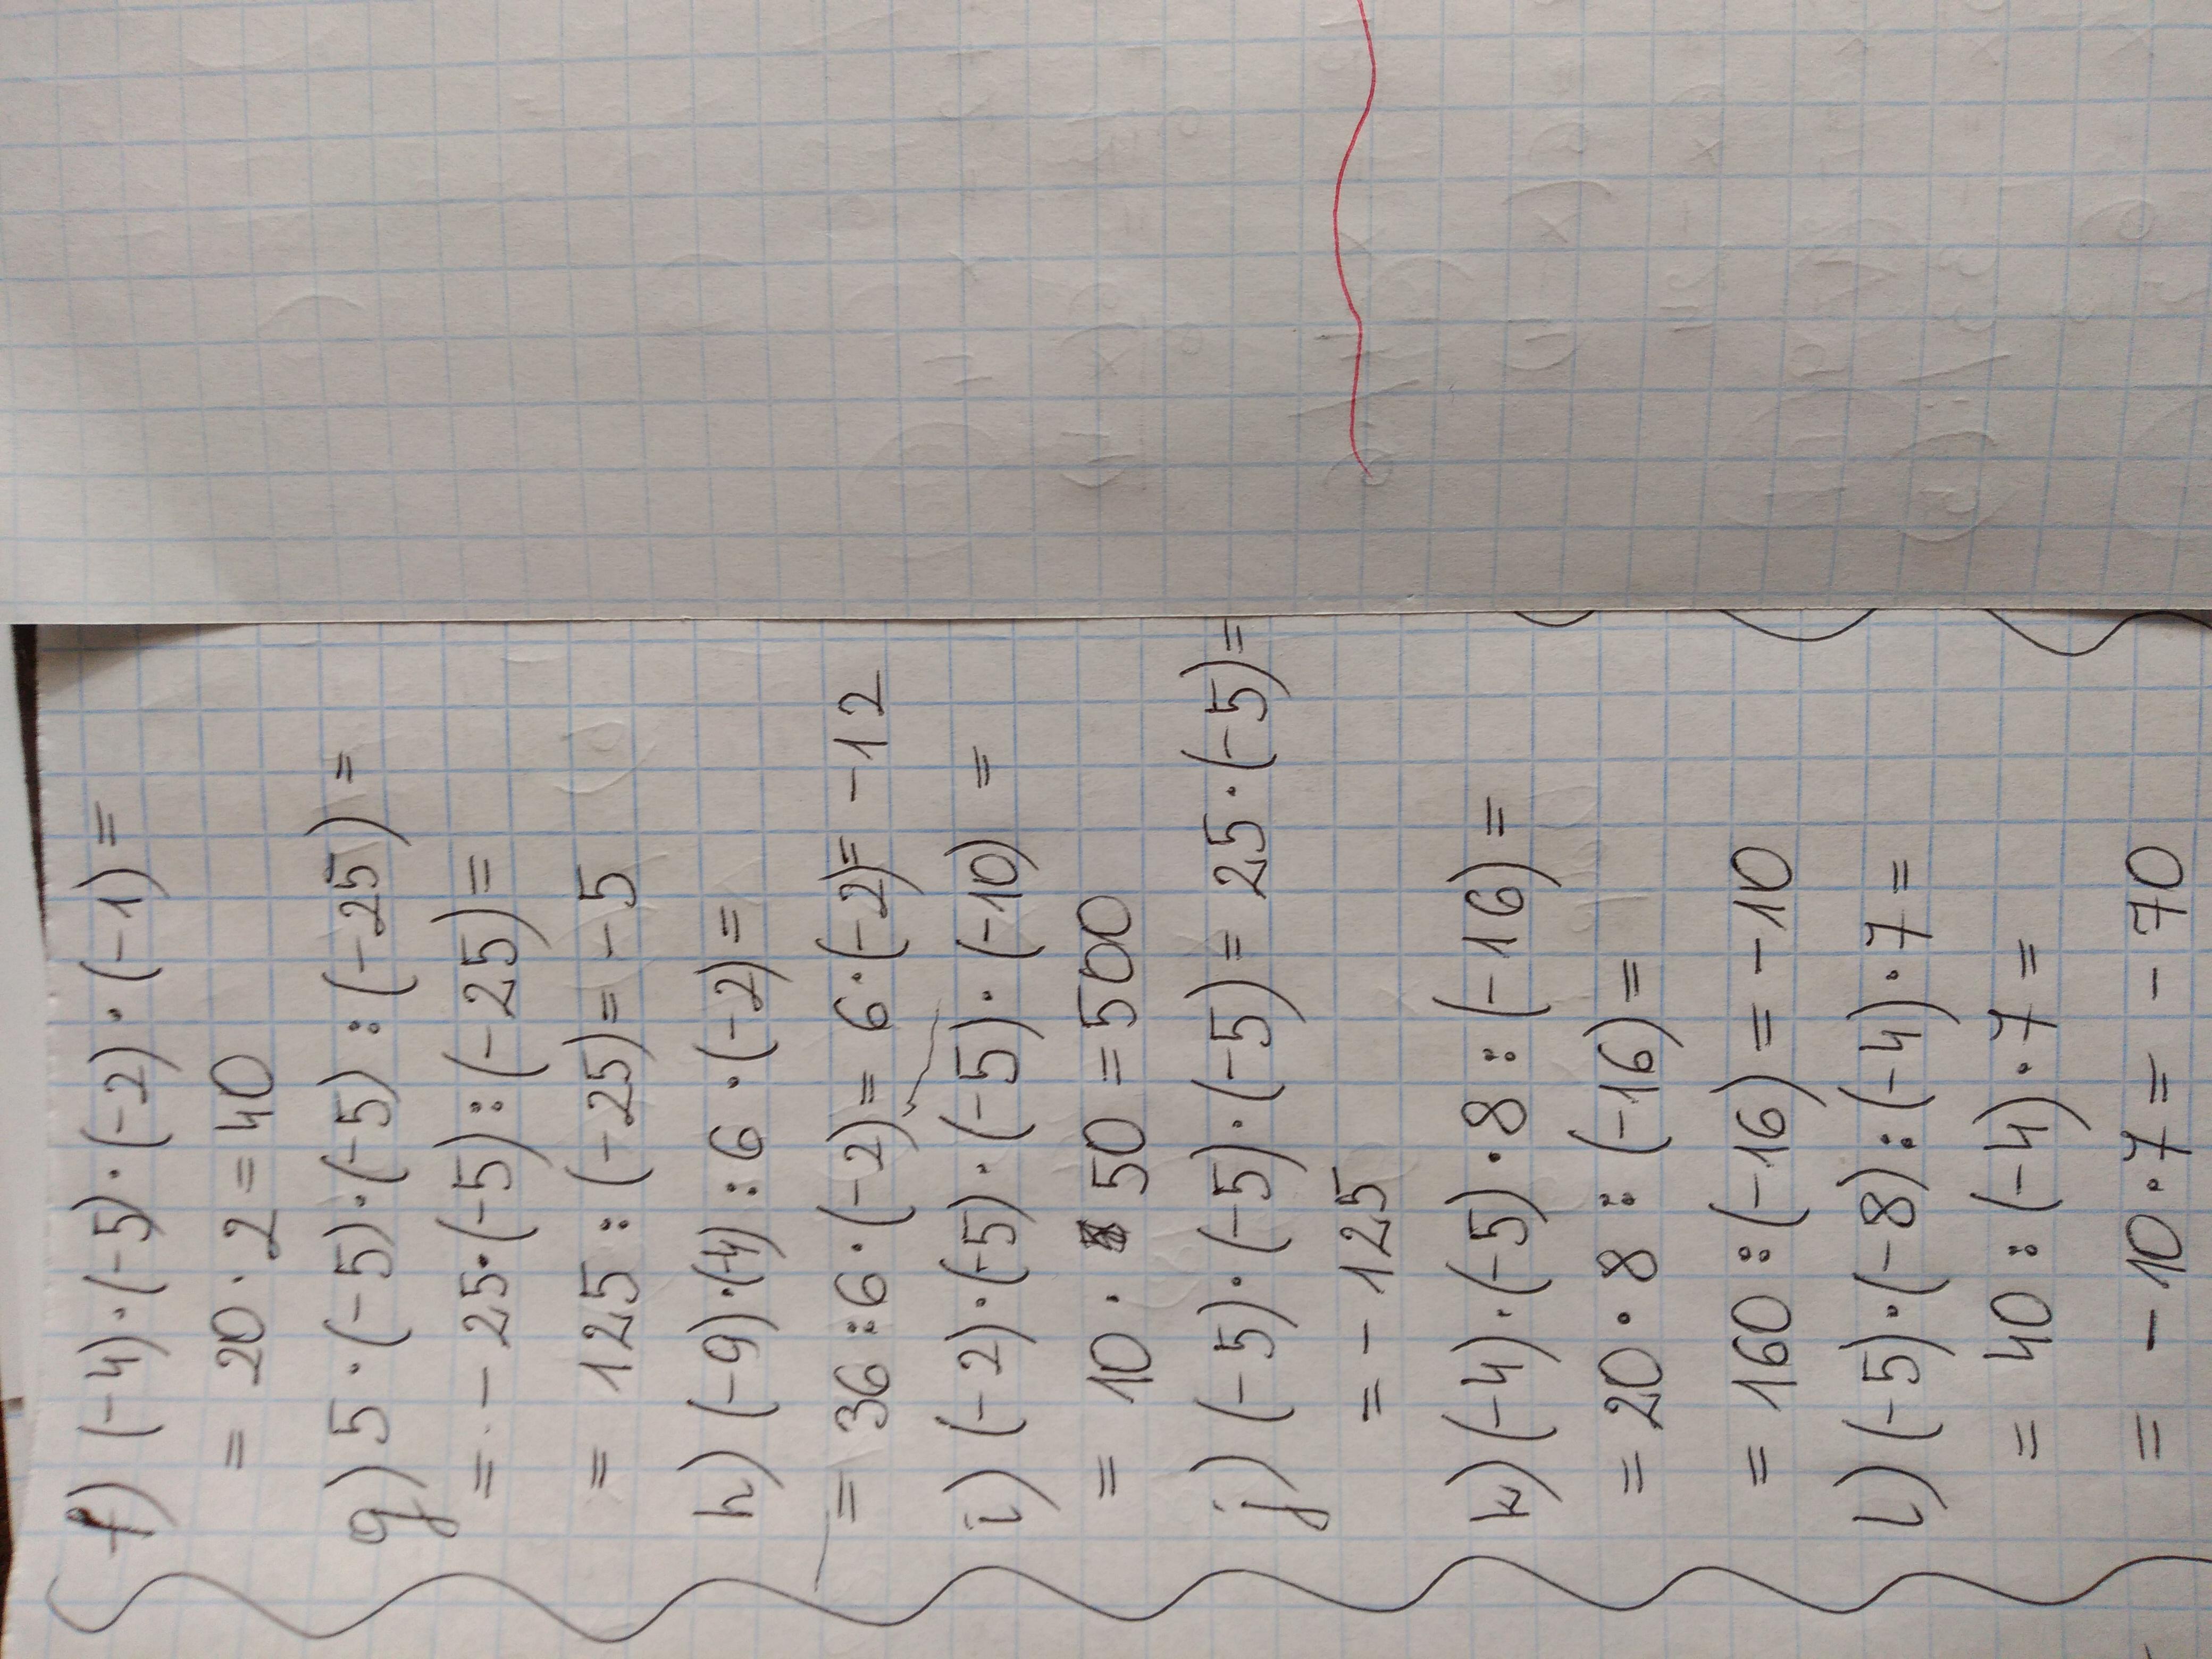 f) (-4)·(-5)·(-2)·(-1)=
= 20·2=40
g) 5·(-5)·(-5):(-25)=
= -25·(-5):(-25)=
= 125:(-25)= -5
h) (-9)·(4):6·(-2)=
= 36:6·(-2)= 6·(-2)= -12
i) (-2)·(-5)·(-5)·(-10) =
= 10· 50 =500
j) (-5)·(-5)·(-5)= 25·(-5)=
= -125
k) (-4)·(-5)·8:(-16)=
= 20·8:(-16)=
= 160:(-16)= -10
l) (-5)·(-8):(-4)·7=
= 40:(-4)·7=
= -10·7= -70